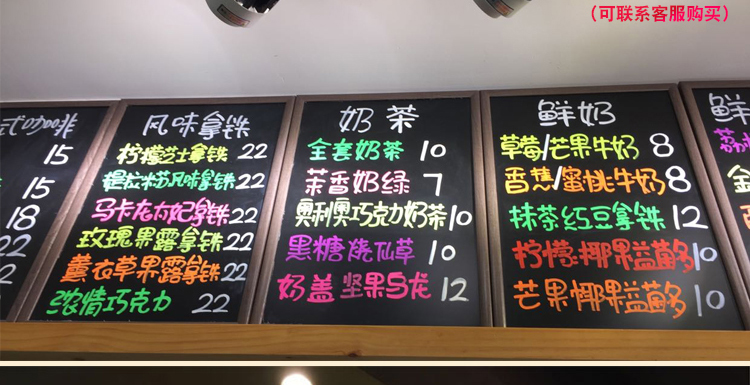 （可联系客服购买）
式咖啡
15
15
18
22
22
风味拿铁
柠檬芝士拿铁 22
提拉米苏风味拿铁 22
马卡龙方妃拿铁 22
玫瑰果露拿铁 22
薰衣草果露拿铁 22
浓情巧克力 22
奶茶
全套奶茶 10
茉香奶绿 7
奥利奥巧克力奶茶 10
黑糖烧仙草 10
奶盖坚果乌龙 12
鲜奶
草莓/芒果牛奶 8
香蕉/蜜桃牛奶 8
抹茶红豆拿铁 12
柠檬椰果益菌多 10
芒果椰果益菌多 10
鲜
荔
金